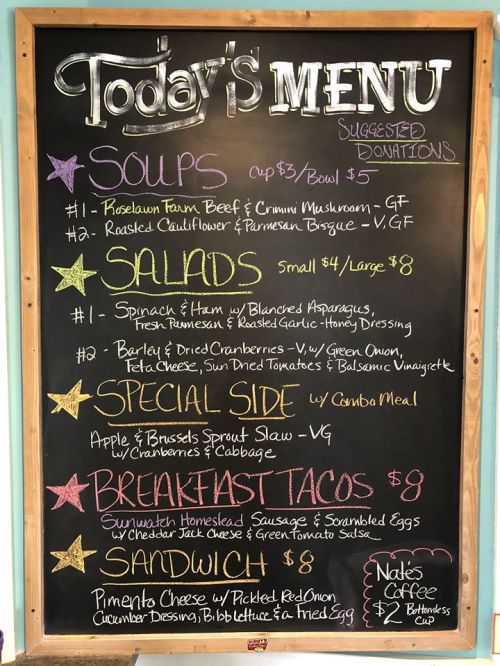 Today's MENU
SUGGESTED
DONATIONS
SOUPS cup $3/Bowl $5
#1 - Roselawn Farm Beef & Crimini Mushroom - GF
#2 - Roasted Cauliflower & Parmesan Bisque - V, GF
SALADS Small $4/Large $8
#1 - Spinach & Ham w/ Blanched Asparagus,
Fresh Parmesan & Roasted Garlic-Honey Dressing
#2 - Barley & Dried Cranberries - V, w/ Green Onion,
Feta Cheese, Sun Dried Tomatoes & Balsamic Vinaigrette
SPECIAL SIDE w/ Combo Meal
Apple & Brussels Sprout Slaw - VG
w/ Cranberries & Cabbage
BREAKFAST TACOS $8
Sunwatch Homestead Sausage & Scrambled Eggs
w/ Cheddar Jack Cheese & Green Tomato Salsa
SANDWICH $8
Pimento Cheese w/ Pickled Red Onion
Cucumber Dressing, Bibb Lettuce & a Fried Egg
Nate's
Coffee
$2 Bottomless
Cup